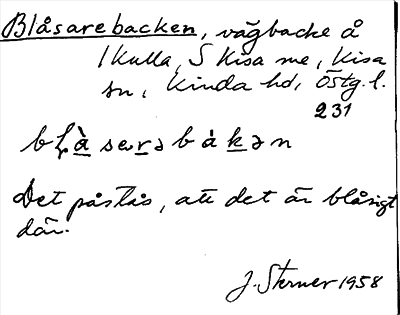 Blåsarebacken, vägbacke å
1 Kulla, S Kisa me, Kisa
sn, Kinda hd, Östg. l.
231
Det påstås, att det är blåsigt
där.
J. Sterner 1958